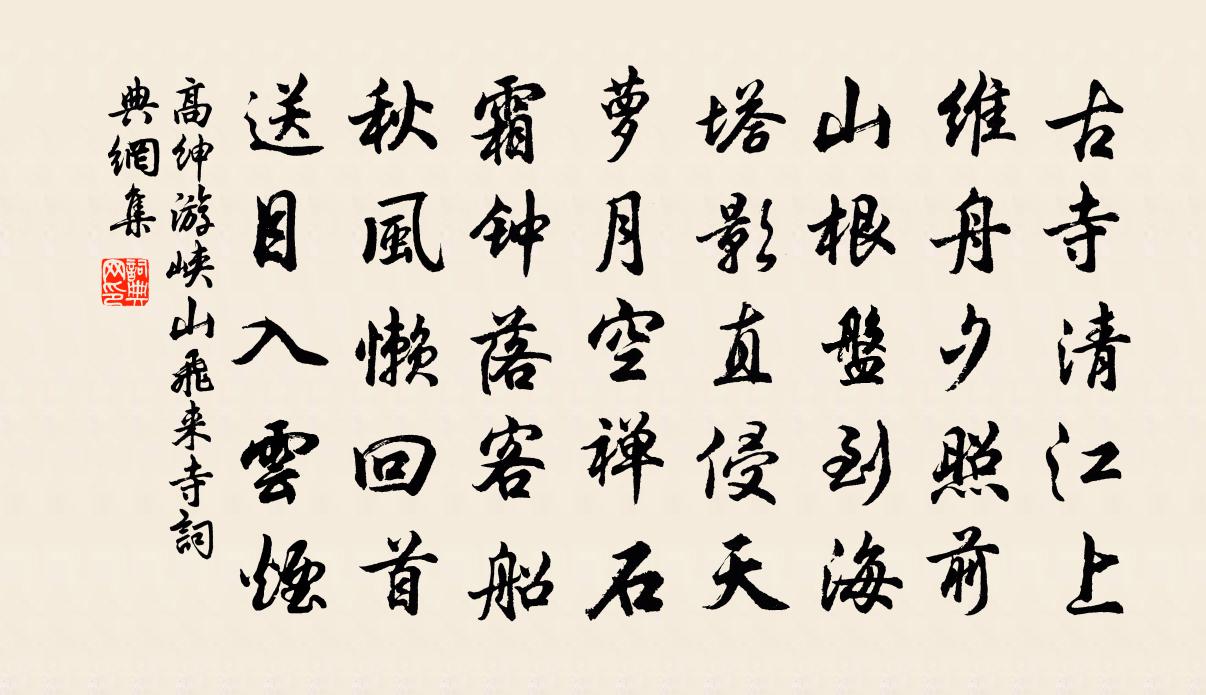 古寺清江上
維舟夕照前
山根盤到海
塔影直侵天
萝月空禅石
霜钟落客船
秋風懒回首
送目入雲煙
高绅游峡山飛来寺詞
典網集
詞典
网印